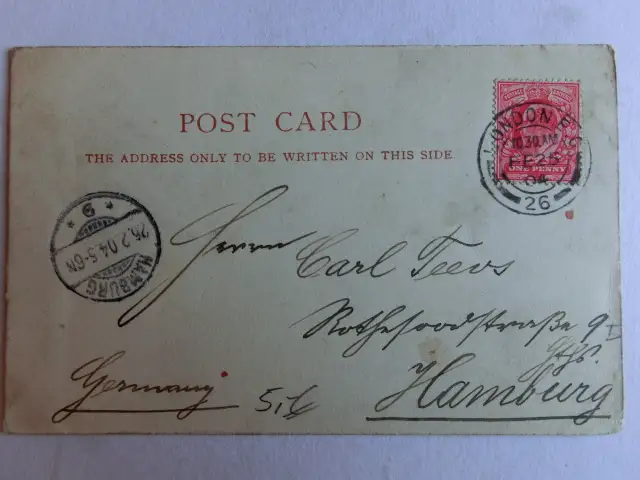 POST CARD
THE ADDRESS ONLY TO BE WRITTEN ON THIS SIDE.
ONE PENNY
LONDON E.C
10.30 AM
FE 25
04
26
* 9 *
26.2.04.5-6N
HAMBURG
Herrn
Carl Teevs
Rothesoodstraße 9 I
Hamburg
Germany